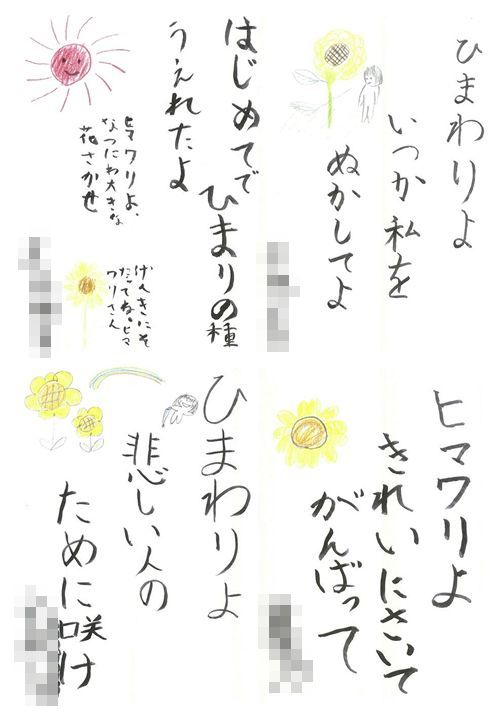 ひまわりよ
いつか私を
ぬかしてよ
はじめてで
ひまりの種
うえれたよ
ヒマワリよ、
なつにわ大きな
花さかせ
げんきにそ
だってね。ヒマ
ワリさん
ヒマワリよ
きれいにさいて
がんばって
ひまわりよ
悲しい人の
ために咲け